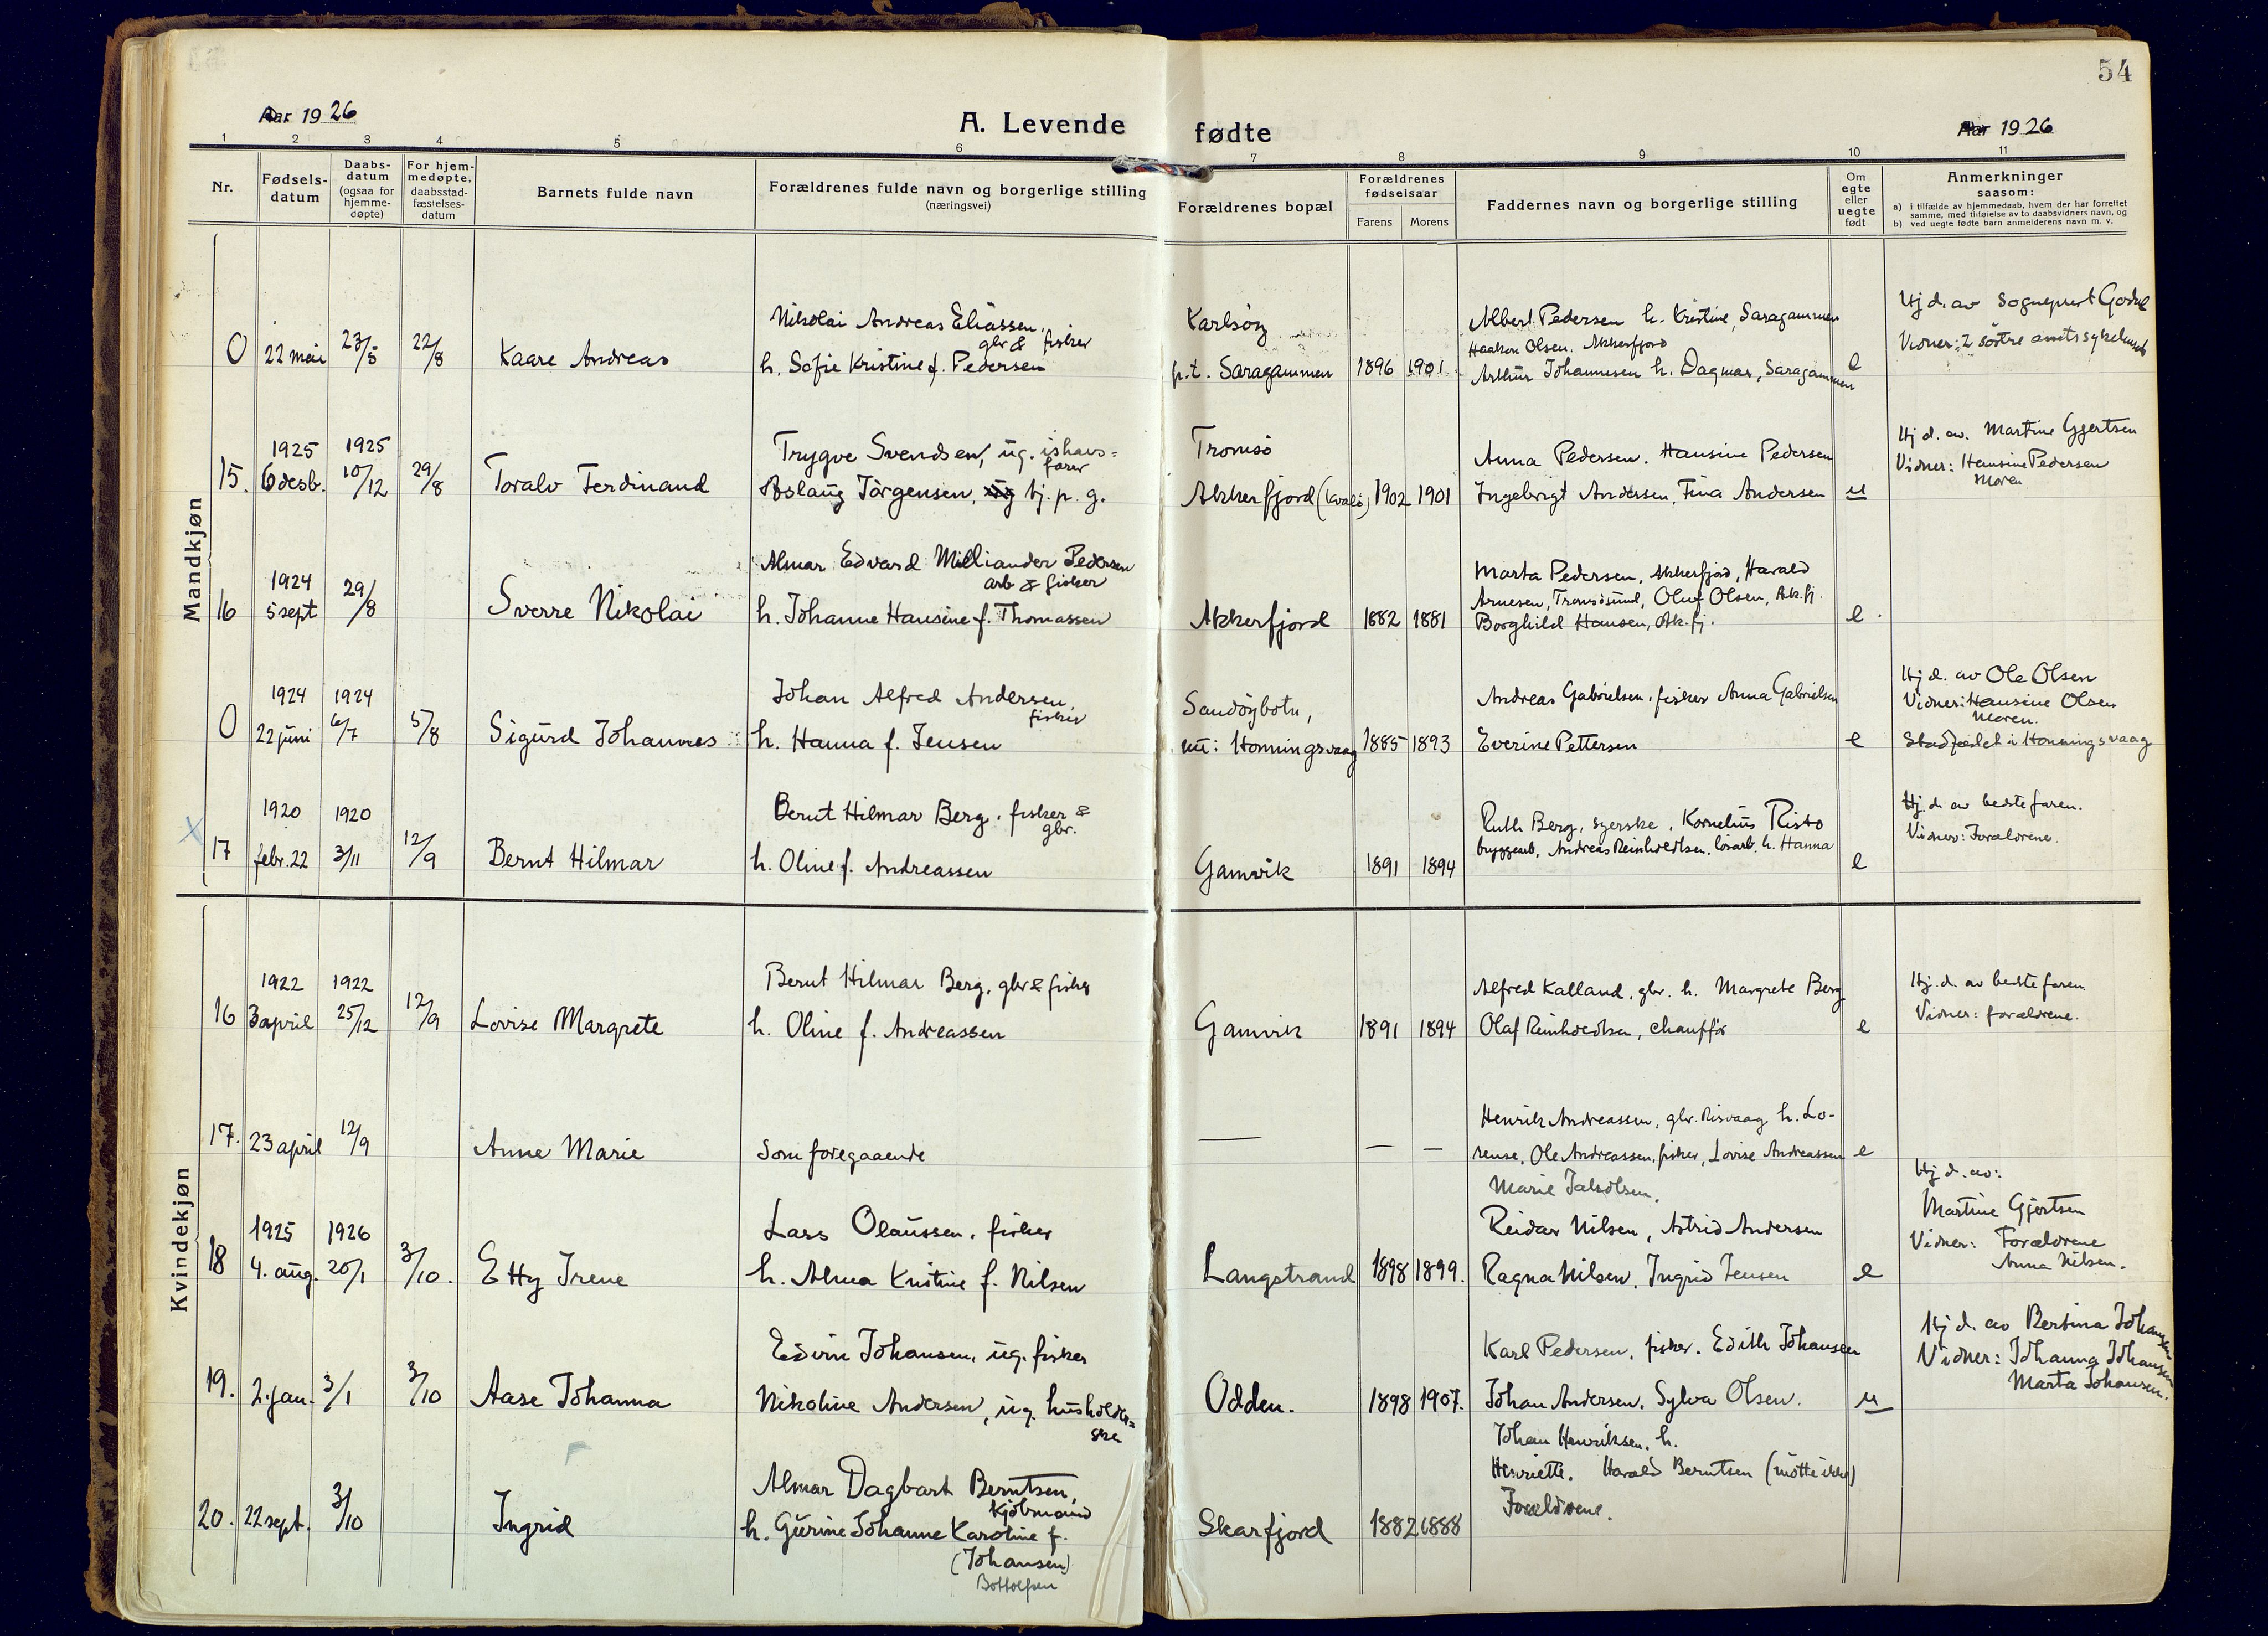 54
Aar 1926
A. Levende fødte
Aar 1926
1 2 3 4 5 6 7 8 9 10 11
Nr.
Fødsels-
datum
Daabs-
datum
(ogsaa for
hjemme-
døpte)
For hjem-
medøpte,
daabsstad-
fæstelses-
datum
Barnets fulde navn
Forældrenes fulde navn og borgerlige stilling
(næringsvei)
Forældrenes bopæl
Forældrenes
fødselsaar
Farens Morens
Faddernes navn og borgerlige stilling
Om
egte
eller
uegte
født
Anmerkninger
saasom:
a) i tilfælde av hjemmedaab, hvem der har forrettet
samme, med tilføielse av to daabsvidners navn, og
b) ved uegte fødte barn anmelderens navn m. v.
Mandkjøn
0 22 mai 23/5 22/8
Kaare Andreas
Nikolai Andreas Eliassen,
gbr & fisker
h. Sofie Kristine f. Pedersen
Karlsöy
p.t. Saragammen 1896 1901
Albert Pedersen h. Kristine, Saragammen
Haakon Olsen. Akkerfjord
Arthur Johannesen h. Dagmar, Saragammen
e
Hj d. av sogneprest
Vidner: 2 söstre amtssykehuset
1925 1925
15. 6 desb. 10/12 29/8
Toralv Ferdinand
Trygve Svendsen, ug. ishavs=
farer
Aslaug Jörgensen, ug tj. p. g.
Tromsö
Akkerfjord (Kvalö) 1902 1901
Anna Pedersen. Hansine Pedersen
Ingebrigt Andersen, Fina Andersen
u
Hj d. av. Martine Gjertsen
Vidner: Hansine Pedersen
Moren
1924
16 5 sept 29/8
Sverre Nikolai
Almar Edvard Milliander Pedersen
arb & fisker
h. Johanne Hansine f. Thomassen
Akkerfjord 1882 1881
Marta Pedersen, Akkerfjord, Harald
Arnesen, Tromsösund, Oluf Olsen, Ak.fj.
Borghild Hansen, Ak.fj.
e
1924 1924
0 22 juni 6/7 5/8
Sigurd Johannes
Johan Alfred Andersen,
fisker
h. Hanna f. Jensen
Sandöybotn,
nu: Honningsvaag 1885 1893
Andreas Gabrielsen, fisker Anna Gabrielsen
Everine Pettersen
e
Hj d. av Ole Olsen
Vidner: Hansine Olsen
Moren.
Stadfestet i Honningsvaag
1920 1920
17 febr. 22 3/11 12/9
Bernt Hilmar
Bernt Hilmar Berg. fisker &
gbr.
h. Oline f. Andreassen
Gamvik 1891 1894
Ruth Berg, syerske, Kornelius Risto
bryggearb, Andreas Reinholdtsen, lösarb. h. Hanna
e
Hj. d. av bestefaren.
Vidner: Forældrene.
Kvindekjøn
1922 1922
16 3 april 25/12 12/9
Lovise Margrete
Bernt Hilmar Berg, gbr & fisker
h. Oline f. Andreassen
Gamvik 1891 1894
Alfred Kalland, gbr. h. Margrete Berg
Olaf Reinholdtsen, chaufför
e
Hj. d. av bestefaren
Vidner: forældrene.
17. 23 april 12/9
Anne Marie
Som foregaaende
— — —
Henrik Andreassen, gbr. Risvaag h. Lo-
rense, Ole Andreassen, fisker, Lovise Andreassen
Marie Jakobsen.
e
1925 1926
18 4. aug. 20/1 3/10.
Etty Irene
Lars Olaussen, fisker
h. Alma Kristine f. Nilsen
Langstrand 1898 1899.
Reidar Nilsen, Astrid Andersen
Ragna Nilsen. Ingrid Jensen
e
Hj d. av:
Martine Gjertsen
Vidner: Forældrene
Anna Nilsen.
19. 2. jan. 3/1 3/10
Aase Johanna
Edvin Johansen, ug. fisker
Nikoline Andersen, ug. husholder=
ske
Odden. 1898 1907.
Karl Pedersen, fisker. Edith Johansen
Johan Andersen. Sylva Olsen.
u
Hj d. av Bertina Johansen
Vidner: Johanna Johansen
Marta Johansen.
20. 22 sept. 3/10
Ingrid
Almar Dagbart Berntsen,
Kjöbmand
h. Gurine Johanne Karoline f.
(Johansen)
Bottolfsen
Skarfjord 1882 1888
Johan Henriksen, h.
Henriette. Harald Berntsen (mötte ikke)
Forældrene.